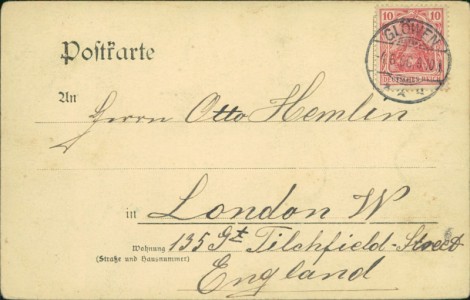 10 10
GLÖWEN
DEUTSCHES REICH
Postkarte
An
Herrn Otto Hemlin
in London W
Wohnung 135 Gt Tilchfield-Street
(Straße und Hausnummer)
England